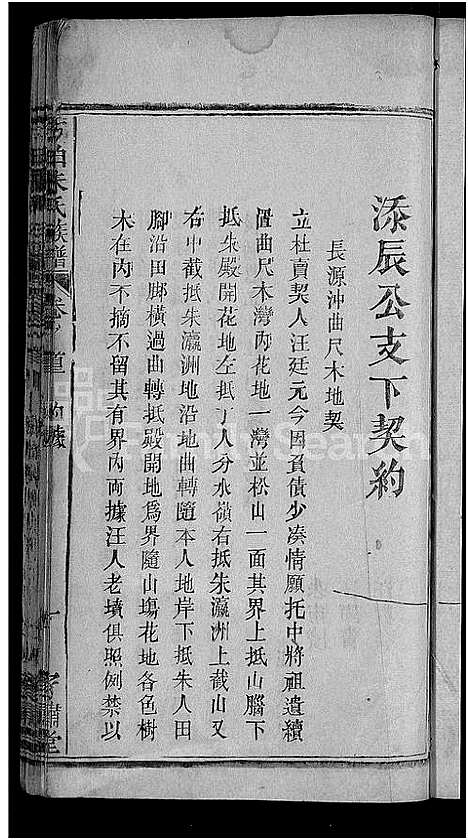 添辰公支下契約
長源沖曲尺木地契
立杜賣契人汪廷元今因負債少湊情願托中將祖遺續
置曲尺木灣內花地一灣並松山一面其界上抵山腦下
抵朱殿開花地左抵丁人分水嶺右抵朱瀛洲上截山又
右中截抵朱瀛洲地沿地曲轉隨本人地岸下抵朱人田
腳沿田腳橫過曲轉抵殿開地為界隨山塲花地各色樹
木在內不摘不留其有界內両據汪人老墳俱照例禁以
朱氏族譜 卷 首 約據 一 備堂
FamilySearch